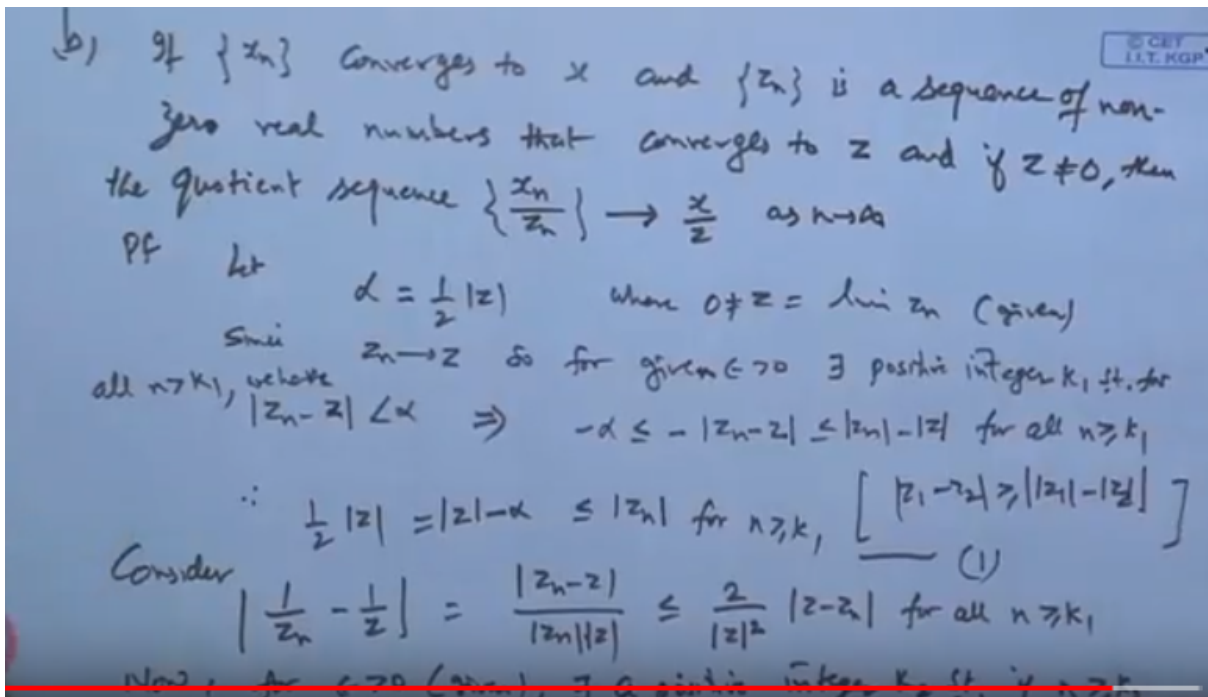 b) If {xn} Converges to x and {zn} is a sequence of non-
© CET
I.I.T. KGP
zero real numbers that converges to z and if z ≠ 0, then
the quotient sequence {xn/zn} → x/z as n→∞
Pf Let
α = 1/2 |z| where 0 ≠ z = lim zn (given)
Since zn → z so for given ∈ >0 ∃ positive integer k1 st. for
all n > k1, we have |zn - z| < α ⇒ -α ≤ - |zn - z| ≤ |zn| - |z| for all n ≥ k1
∴ 1/2 |z| = |z| - α ≤ |zn| for n ≥ k1 [ |z1 - z2| ≥ ||z1| - |z2|| ]
(1)
Consider
|1/zn - 1/z| = |zn - z| / |zn||z| ≤ 2/|z|² |z - zn| for all n ≥ k1